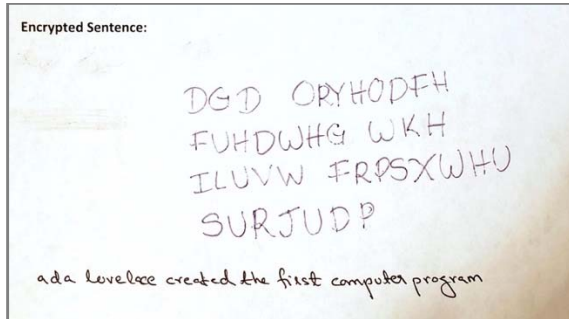 Encrypted Sentence:
DGD ORYHODFH
FUHDWHG WKH
ILUVW FRPSXWHU
SURJUDP
ada lovelace created the first computer program